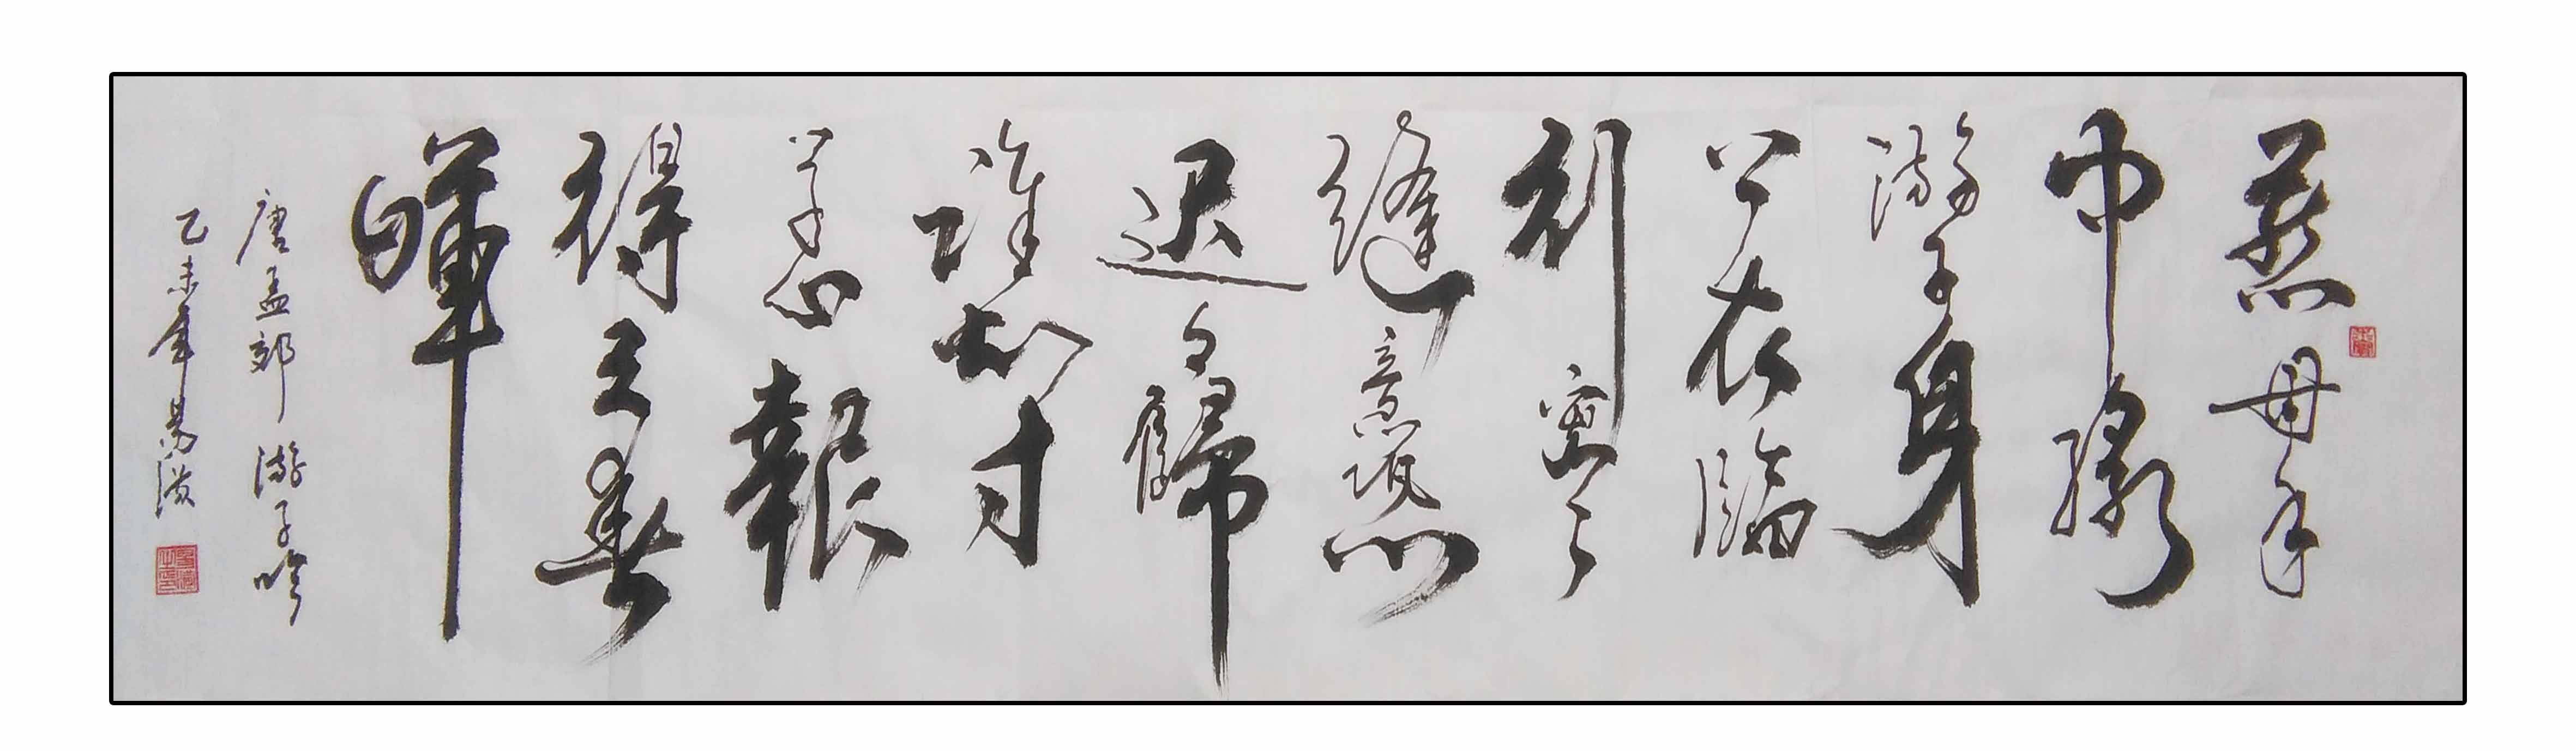 慈母手
中線
游子身
上衣臨
行密〻
縫意恐
遲〻歸
誰知寸
草心報
得三春
暉
唐孟郊游子吟
乙未年